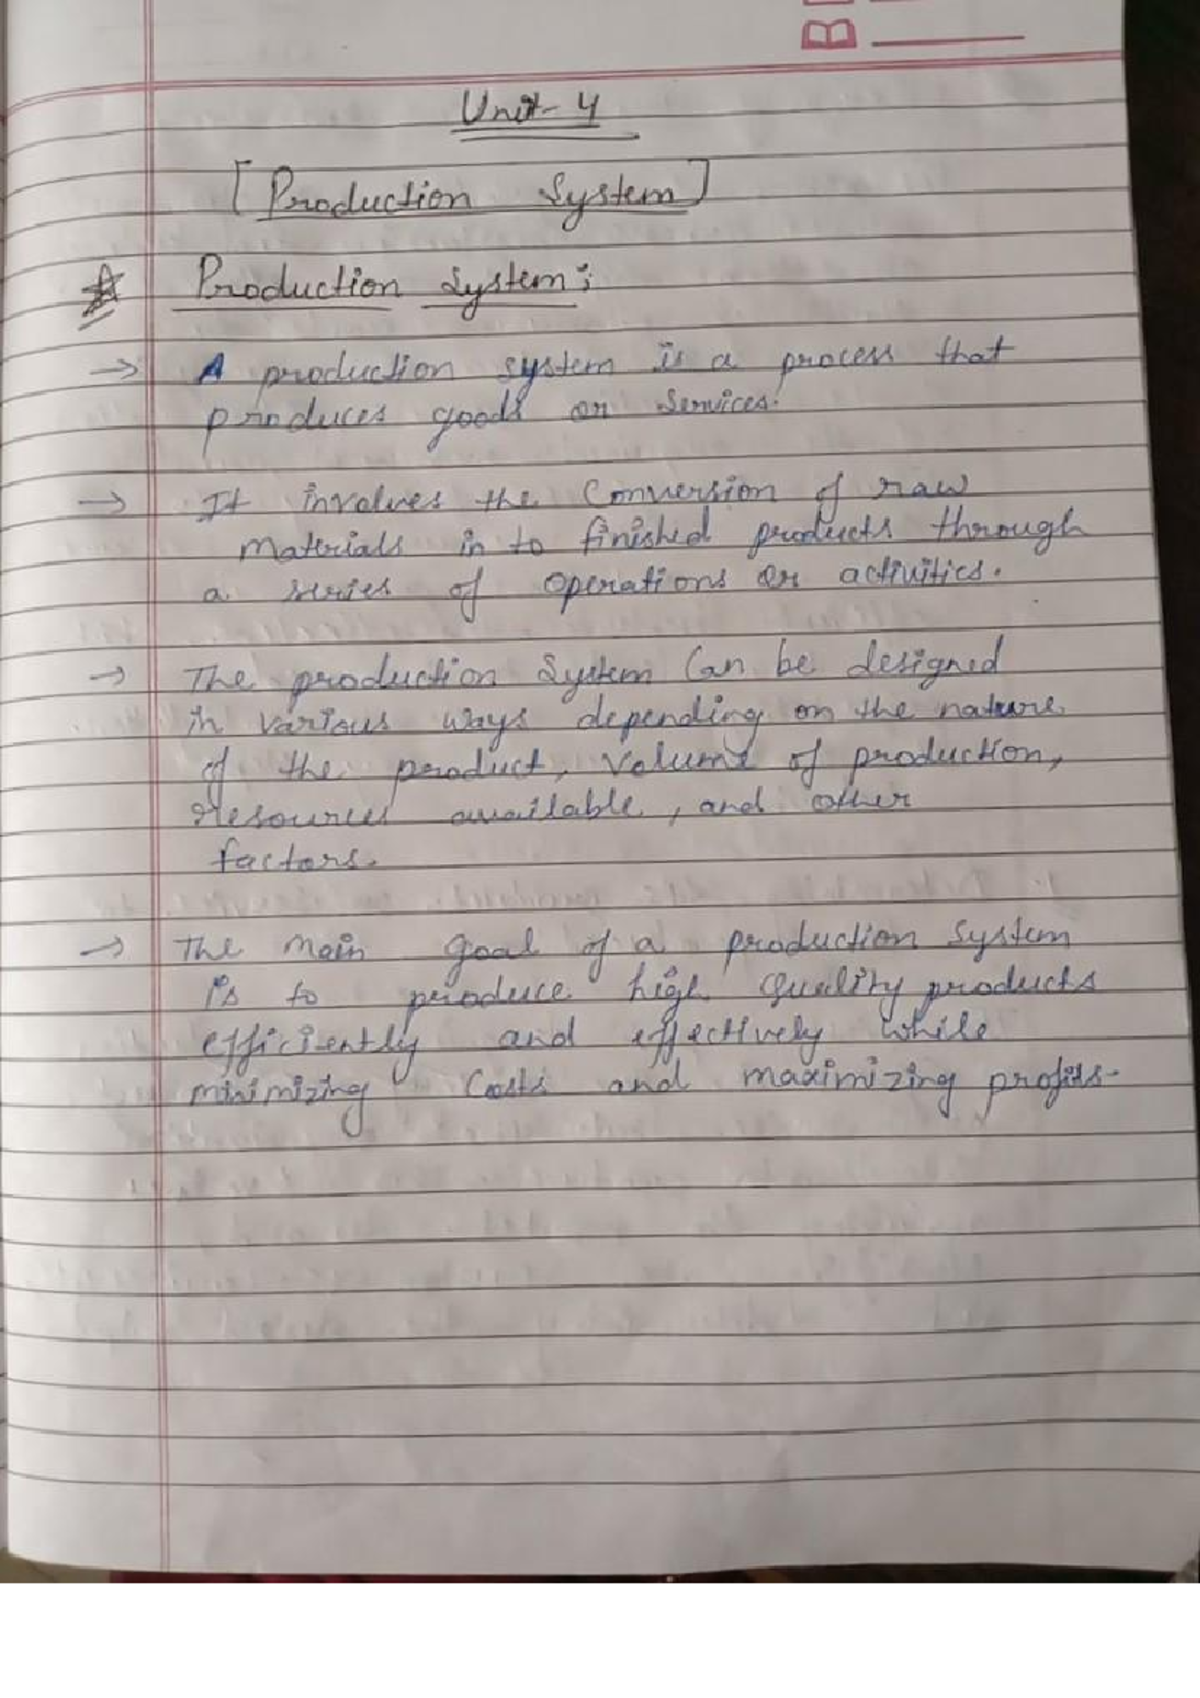 Unit-4
[Production System]
Production System:
→ A production system is a process that
produces goods or services.
→ It involves the Conversion of raw
materials in to finished products through
a series of operations or activities.
→ The production System Can be designed
in various ways depending on the nature
of the product, Volume of production,
resources available, and other
factors.
→ The main goal of a production System
is to produce high quality products
efficiently and effectively while
minimizing Costs and maximizing profits.